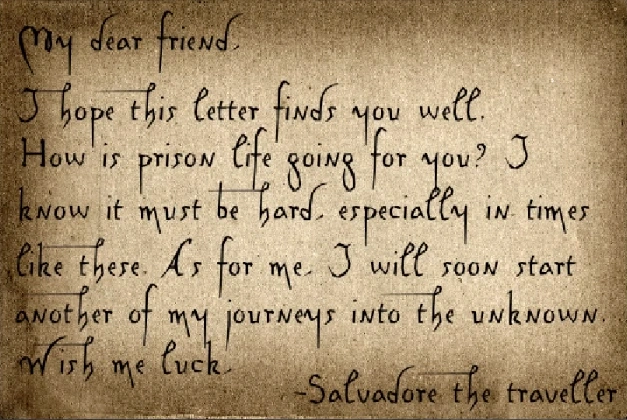 My dear friend,
I hope this letter finds you well.
How is prison life going for you? I
know it must be hard, especially in times
like these. As for me, I will soon start
another of my journeys into the unknown.
Wish me luck.
-Salvadore the traveller